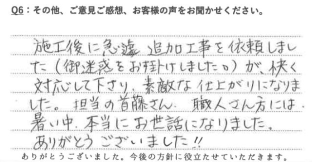 Q6：その他、ご意見ご感想、お客様の声をお聞かせください。
施工後に急遽 追加工事を依頼しまし
た（御迷惑をお掛けしました）が、快く
対応して下さり、素敵な仕上がりになりま
した。担当の首藤さん、職人さん方には、
暑い中、本当にお世話になりました。
ありがとうございました!!
ありがとうございました。今後の方針に役立たせていただきます。